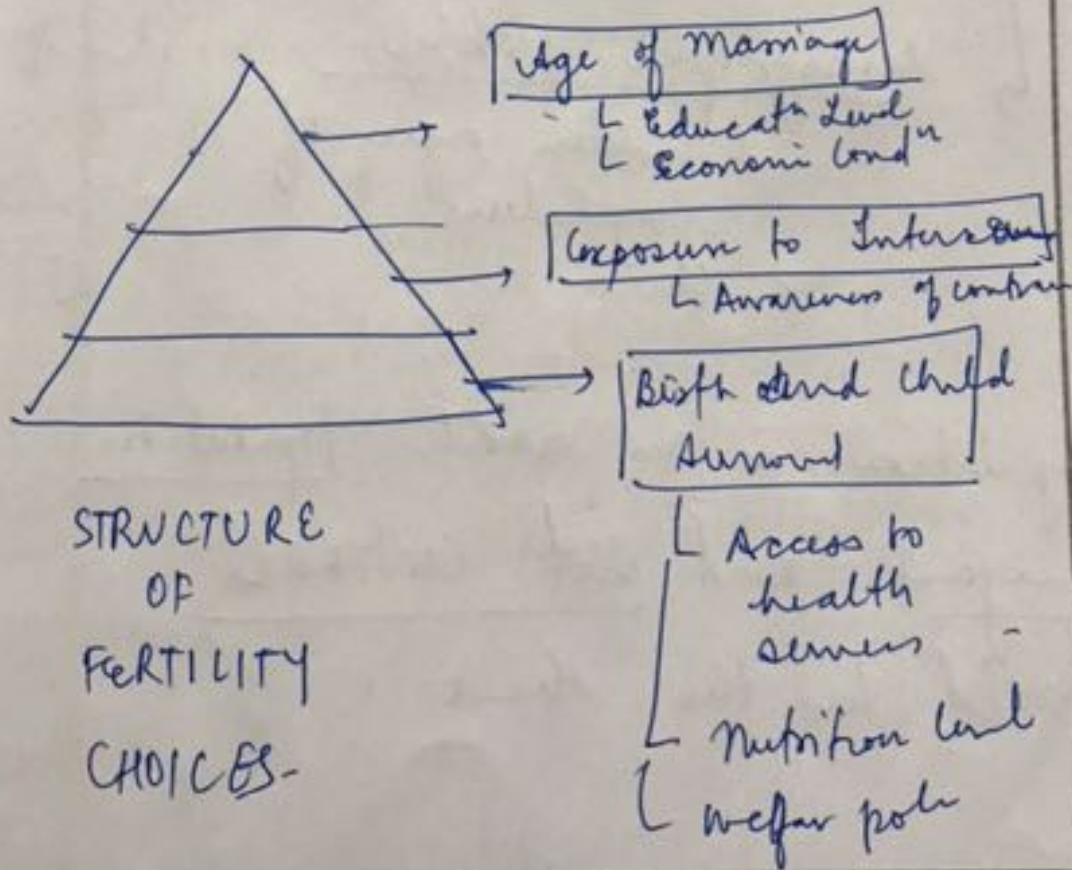 Age of Marriage
Educatn Level
Economi Condn
Exposure to
Awareness of contra
Birth And Child
Survival
Access to
health
services
Nutrition level
welfar poli
STRUCTURE
OF
FERTILITY
CHOICES-